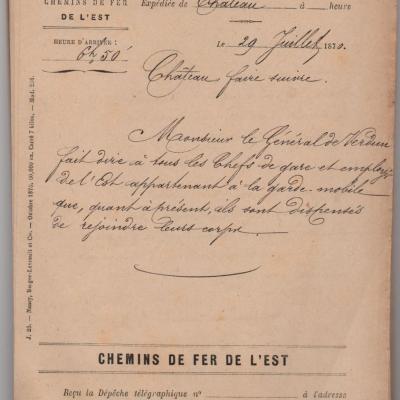 CHEMINS DE FER
DE L'EST
Expédiée de Château à heure
HEURE D'ARRIVÉE :
6h 50'
Le 29 Juillet 1870.
Château faire suivre.
Monsieur le Général de Verdun
fait dire à tous les Chefs de gare et employés
de l'Est appartenant à la garde-mobile
que, quant à présent, ils sont dispensés
de rejoindre leurs corps.
J. 25. — Nancy, Berger-Levrault et Cie. — Octobre 1870, Carré 7 kilos. — Mod.
CHEMINS DE FER DE L'EST
Reçu la Dépêche télégraphique n° à l'adresse